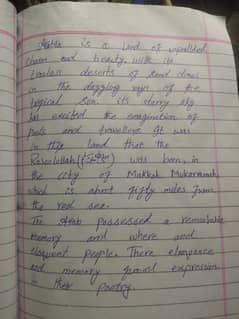 is a land of unparalled
charm and beauty, with its
trackless deserts of sand dunes
in the dazzling rays of the
tropical sun. its starry sky
has excited the imagination of
poets and travelers. It was
in this land that the
Rasoolullah (ﷺ) was born, in
the city of Makkah Mukarramah,
which is about fifty miles from
the red sea.
The Arab possessed a remarkable
memory and where and
eloquent people. There eloquence
and memory found expression
in their poetry.